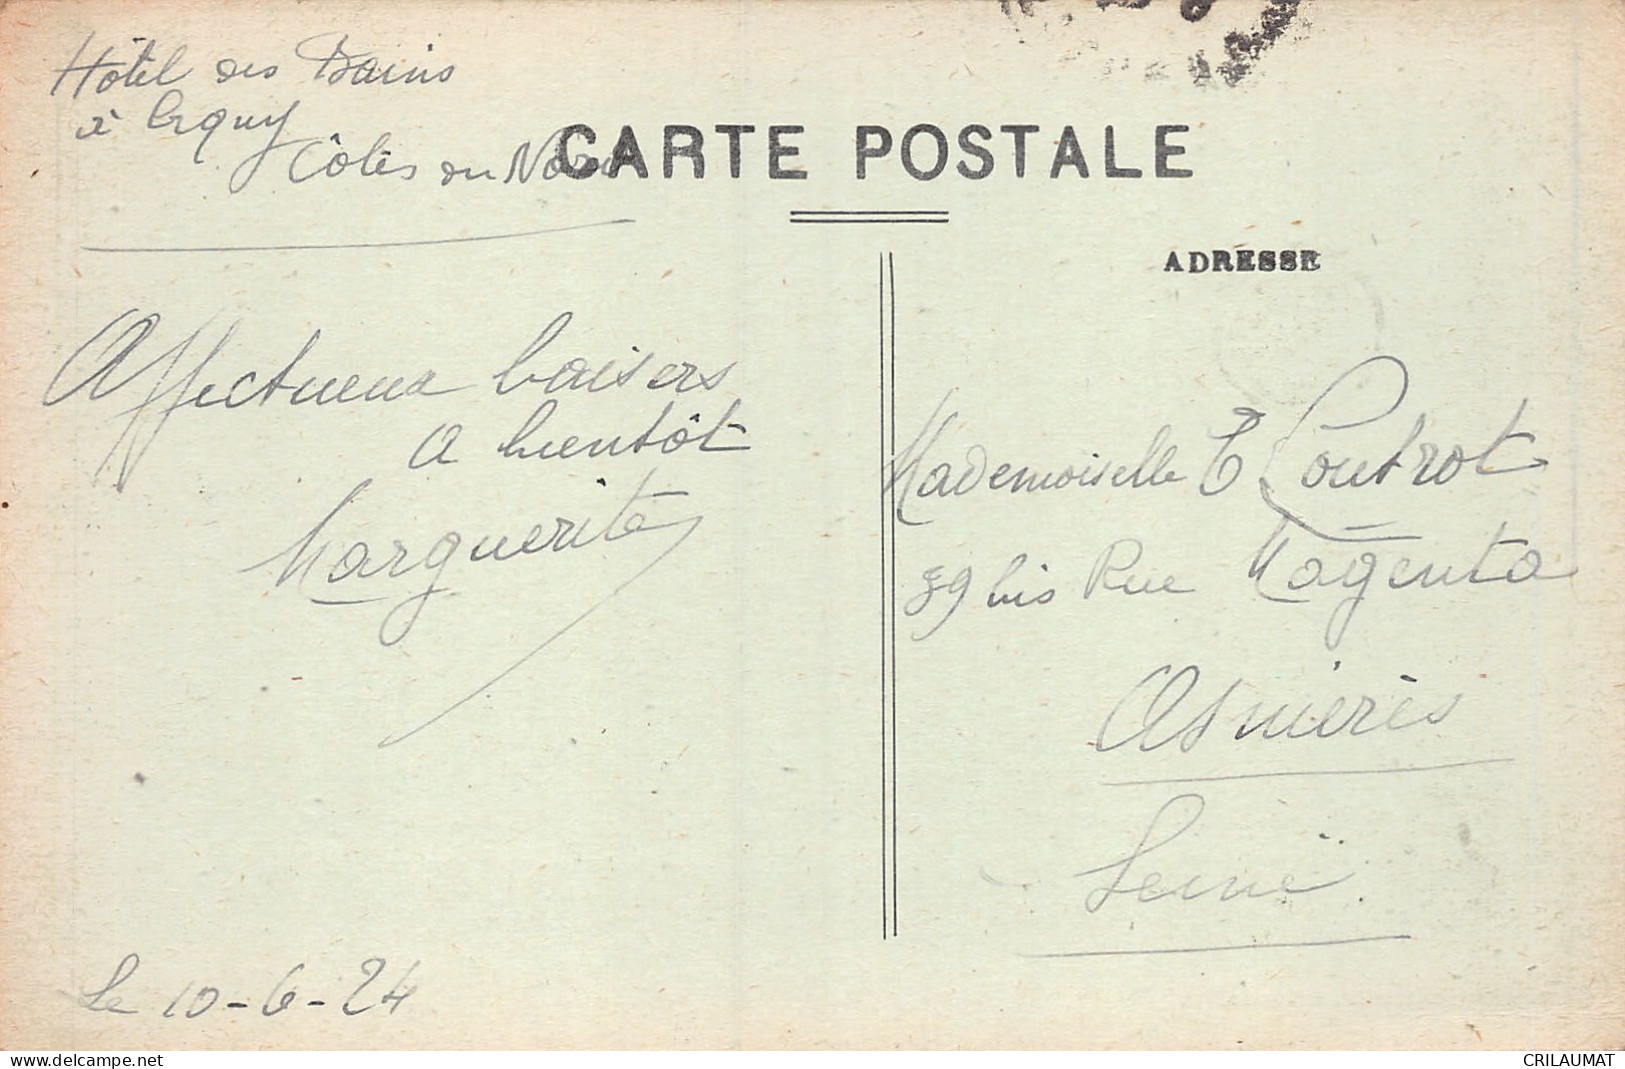 Hôtel des Bains
à Erquy
Côtes du Nord
CARTE POSTALE
ADRESSE
Affectueux baisers
A bientôt
Marguerite
Mademoiselle E Coutrot
39 bis Rue Magenta
Asnières
Seine
Le 10-6-24
www.delcampe.net
CRILAUMAT